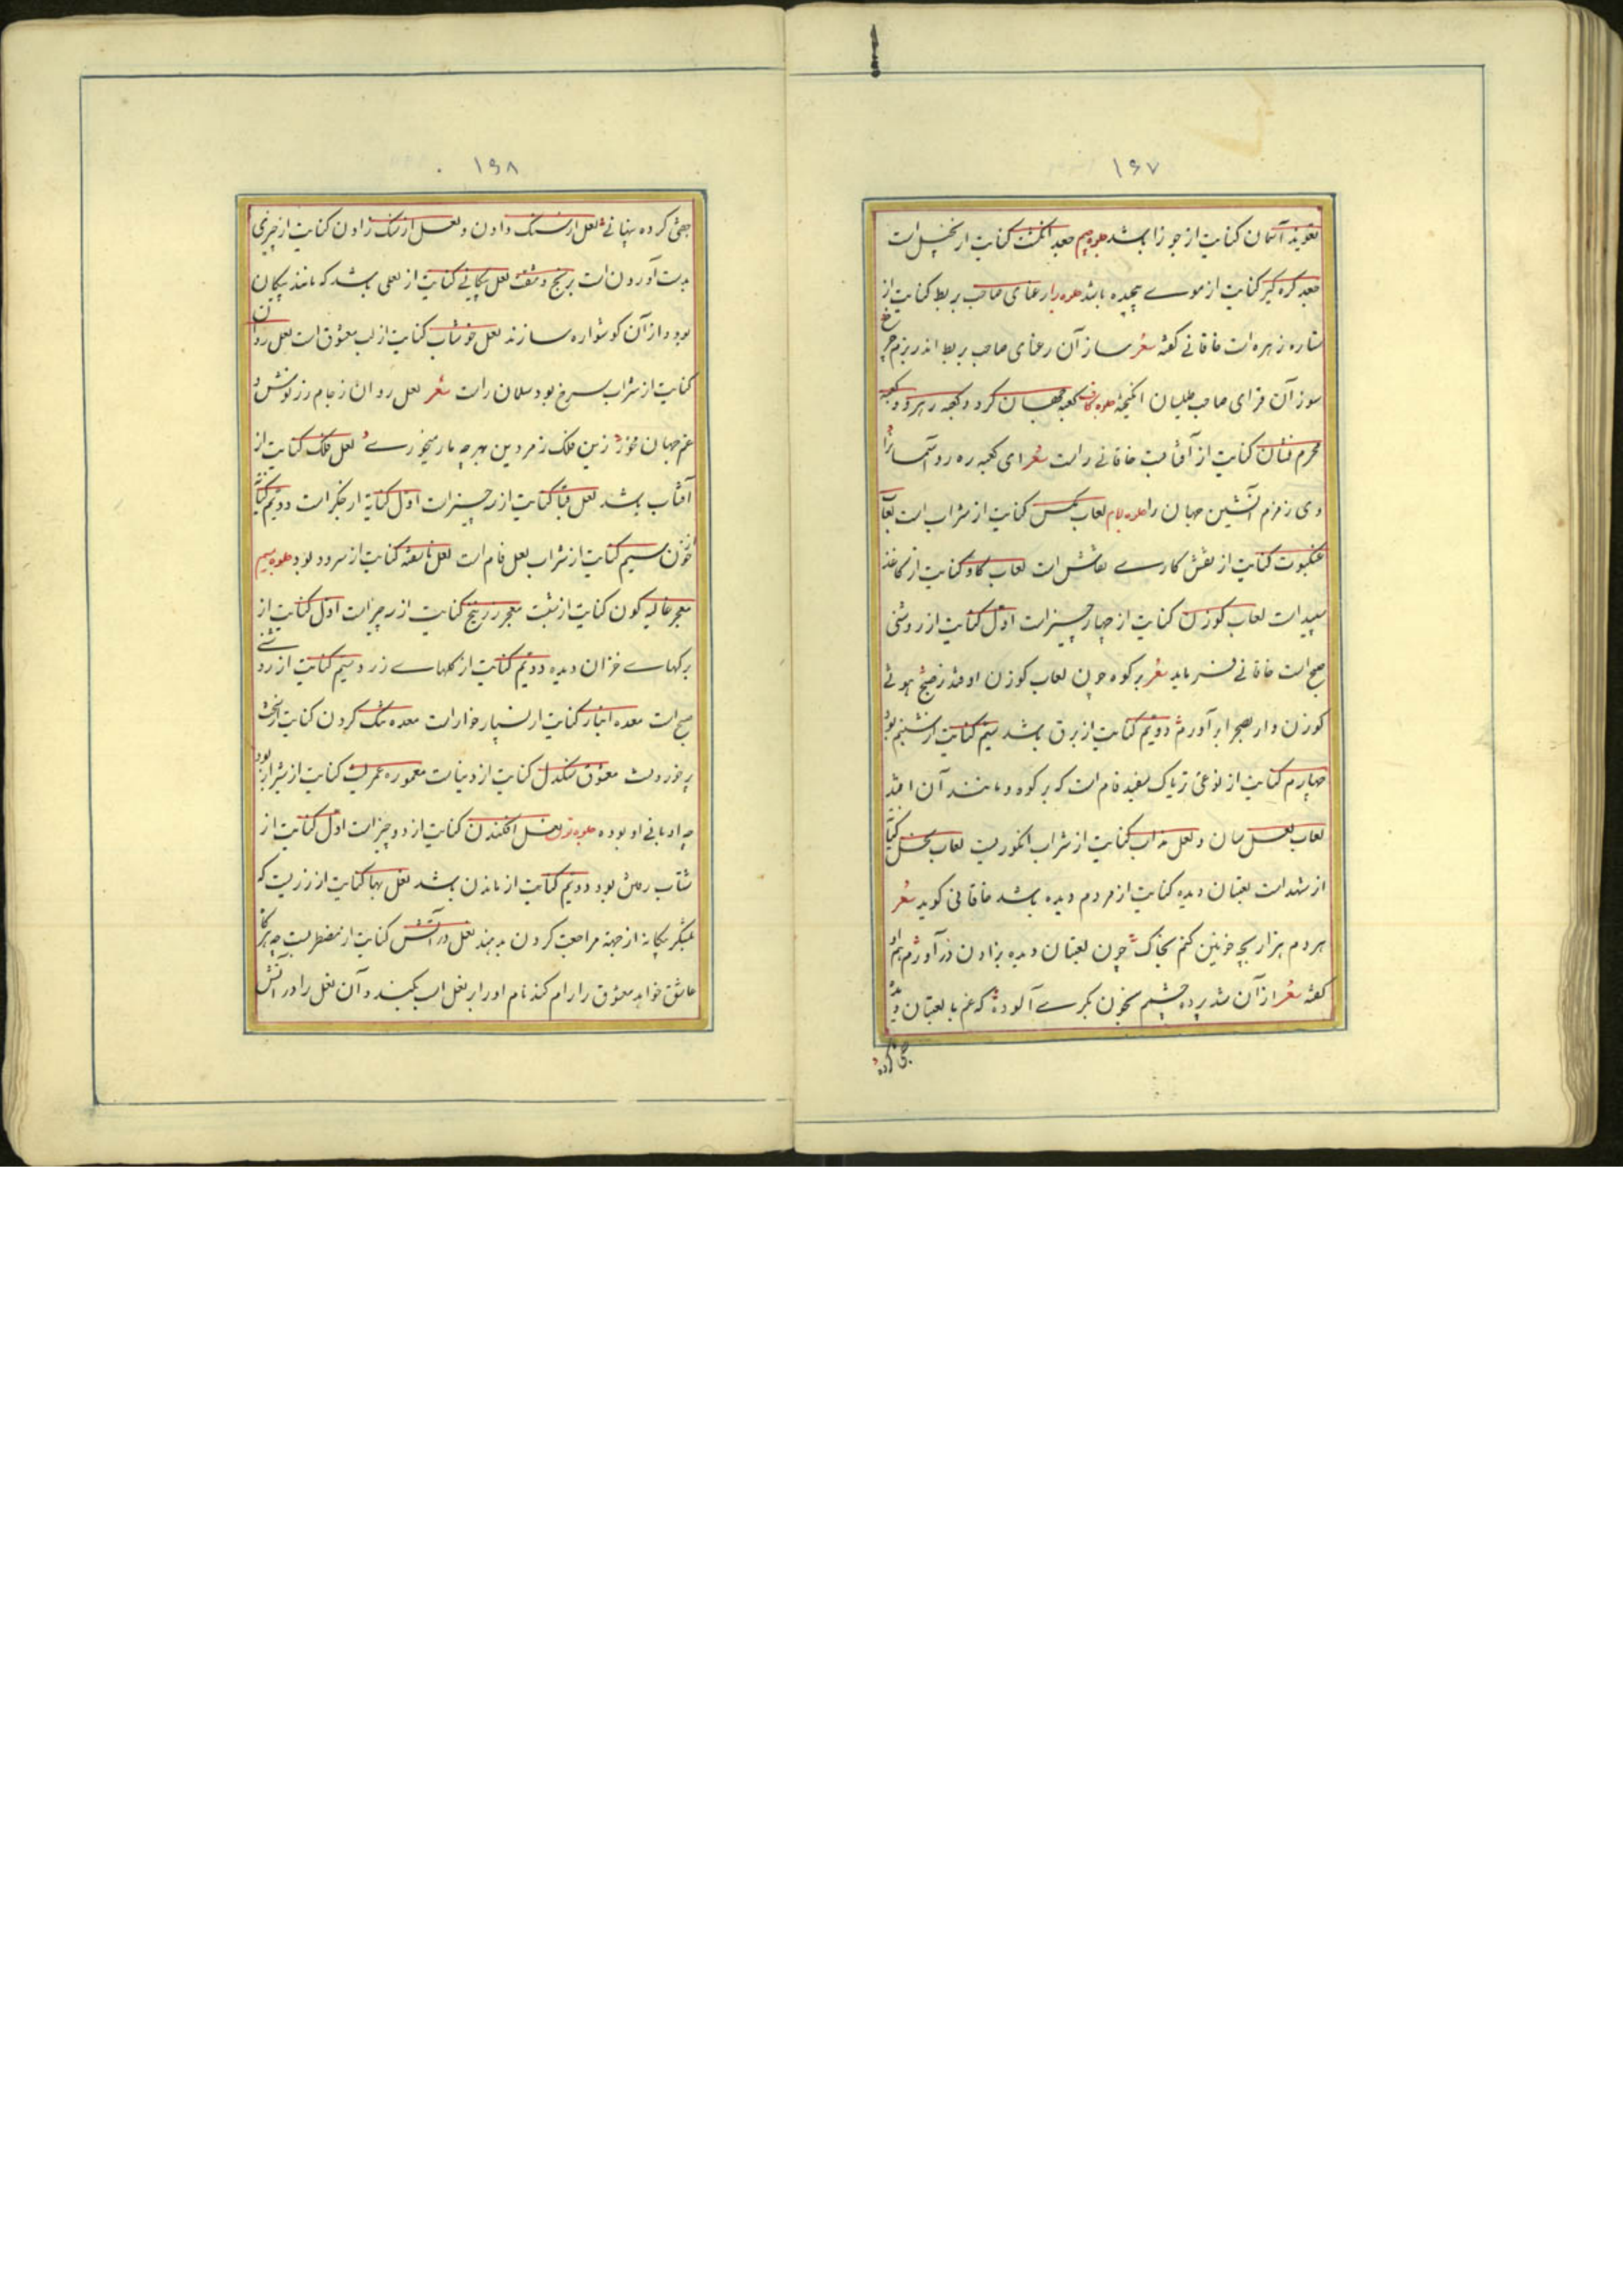 ۱۶۷
تعویذ آسمان کنایت از جوزا باشد جلوه جیم جعد انگشت کنایت از بخیل است
جعد گره گیر کنایت از موے پیچیده باشد جلوه را رعنای صاحب بربط کنایت از
ستاره زهره است خاقانے گفته شعر ساز آن رعنای صاحب بربط اندر بزم چرخ
سوز آن قرای صاحب طیلسان انگیخته جلوه کاف کعبه جهان گرد و کعبه رهرو و کعبه
محرم نشان کنایت از آفتابست خاقانے راست شعر ای کعبه ره رو آسمانرا
وی زمزم آتشین جهان را جلوه لام لعاب مگس کنایت از شراب است لعاب
عنکبوت کنایت از نقش کارے نقاش است لعاب گاو کنایت از کاغذ
سپید است لعاب گوزن کنایت از چهار چیز است اول کنایت از روشنی
صبح است خاقانے فرماید شعر بر کوه چون لعاب گوزن اوفتد ز صبح هوئے
گوزن وار بصحرا برآورم دویم کنایت از برق باشد سیم کنایت از شبنم بود
چهارم کنایت از نوعی تریاک سفید فام است که بر کوه و مانند آن افتد
لعاب لعل سان و لعل مذاب کنایت از شراب انگوریست لعاب نحل کنایت
از شهد است لعبتان دیده کنایت از مردم دیده باشد خاقانی گوید شعر
هر دم هزار بچه خونین کنم بخاک چون لعبتان دیده بزادن درآورم هم او
گفته شعر از آن شد پرده چشمم بخون بکرے آلوده که غم با لعبتان دیده
جفتی کرده
۱۶۸
جفتی کرده پنهانے لعل از سنگ دادن و لعل از سنگ زادن کنایت از چیزی
بدست آوردن است برنج و مشقت لعل پیکانے کنایت از لعلی باشد که مانند پیکان
بود و از آن گوشواره سازند لعل خوشاب کنایت از لب معشوق است لعل روان
کنایت از شراب سرخ بود سلمان راست شعر لعل روان ز جام زر نوش و
غم جهان مخور زین فلک زمردین بهر چه مار میخورے لعل فلک کنایت از
آفتاب باشد لعل قبا کنایت از سه چیز است اول کنایة از جگر است دویم کنایت
از خون سیم کنایت از شراب لعل فام است لعل ناسفته کنایت از سرود بود جلوه میم
معجر غالیه گون کنایت از شب معجر زرنیخ کنایت از سه چیز است اول کنایت از
برگهاے خزان دیده دویم کنایت از گلهاے زرد سیم کنایت از روشنے
صبح است معده انبار کنایت از بسیار خوار است معده تنگ کردن کنایت از سخت
پر خوردنست معشوق سنگدل کنایت از دنیاست معموره عمریست کنایت از شیراز بود
چه او بانی او بوده جلوه نون نعل افکندن کنایت از دو چیز است اول کنایت از
شتاب رفتن بود دویم کنایت از ماندن باشد نعل بها کنایت از زریست که
بلشکر بیگانه از جهة مراجعت کردن بدهند نعل در آتش کنایت از مضطربست چه هرگاه
عاشق خواهد معشوق را رام کند نام او را بر نعل اسب بکند و آن نعل را در آتش